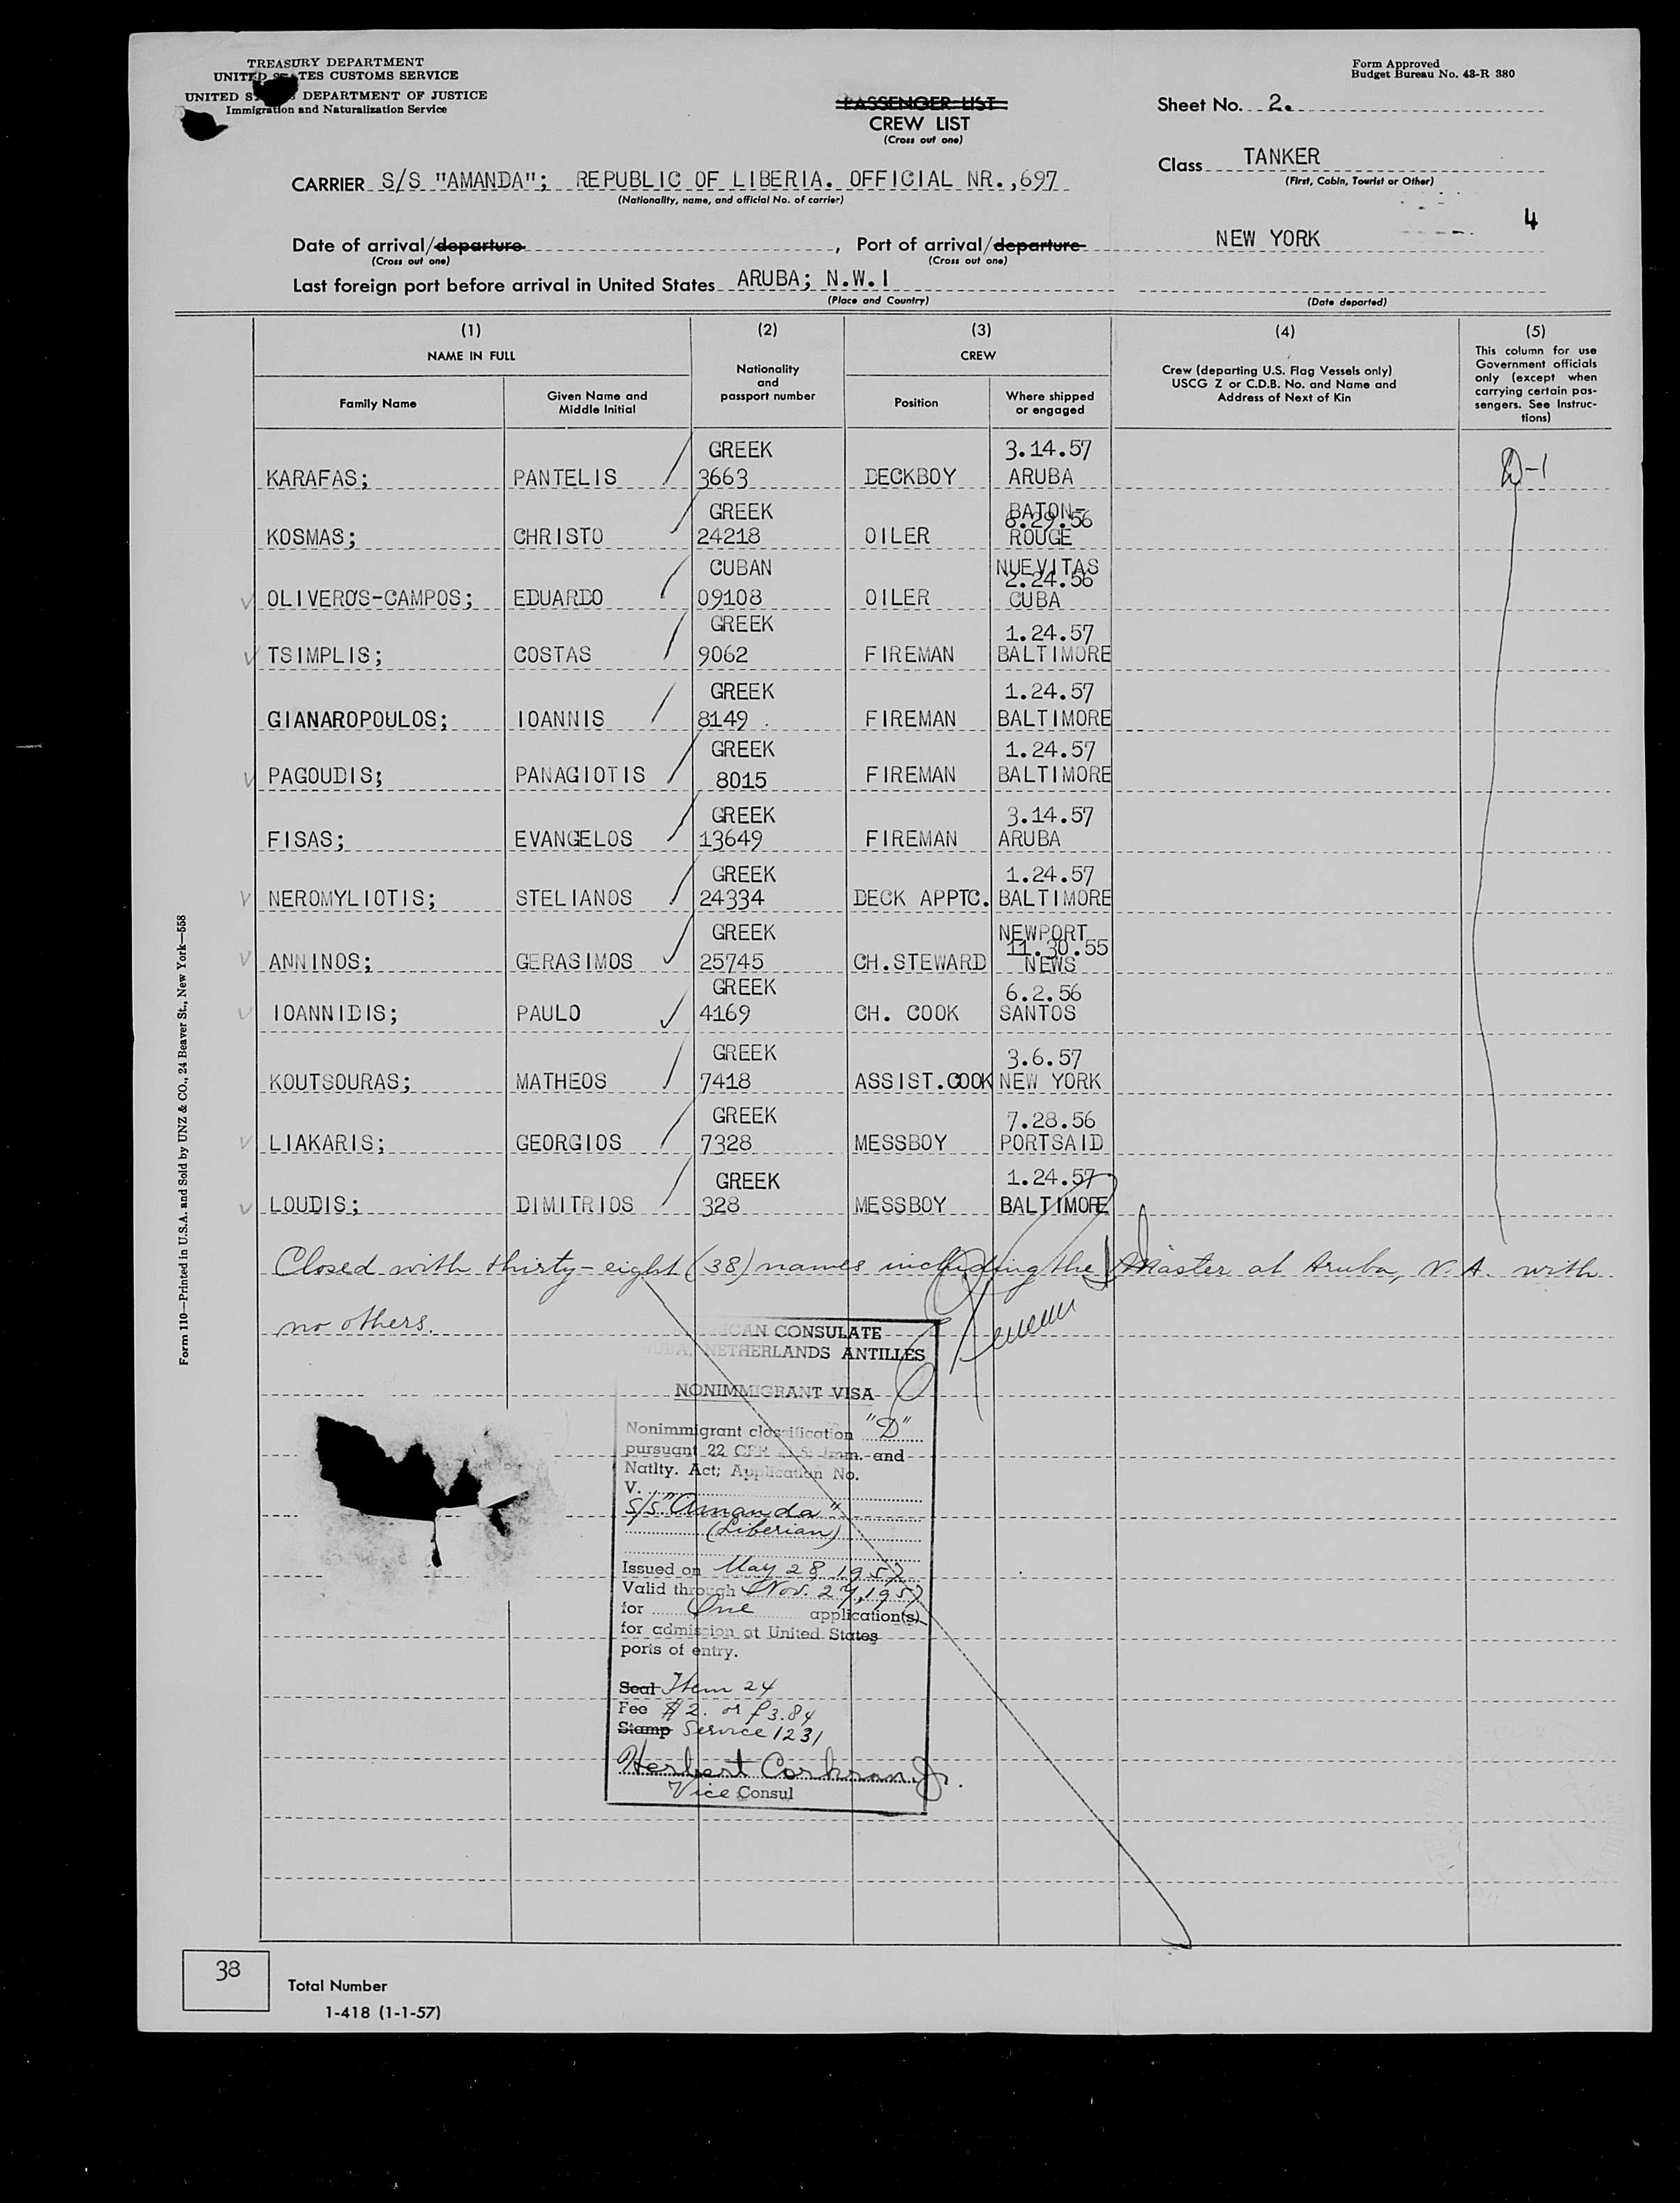 TREASURY DEPARTMENT
UNITED STATES CUSTOMS SERVICE
UNITED S DEPARTMENT OF JUSTICE
Immigration and Naturalization Service
Form Approved
Budget Bureau No. 43-R 380
PASSENGER LIST
CREW LIST
(Cross out one)
Sheet No. 2.
Class TANKER
(First, Cabin, Tourist or Other)
CARRIER S/S "AMANDA"; REPUBLIC OF LIBERIA. OFFICIAL NR.,697
(Nationality, name, and official No. of carrier)
4
Date of arrival/departure , Port of arrival/departure NEW YORK
(Cross out one) (Cross out one)
Last foreign port before arrival in United States ARUBA; N.W.I
(Place and Country) (Date departed)
(1) (2) (3) (4) (5)
NAME IN FULL
Family Name
Given Name and
Middle Initial
Nationality
and
passport number
CREW
Position
Where shipped
or engaged
Crew (departing U.S. Flag Vessels only)
USCG Z or C.D.B. No. and Name and
Address of Next of Kin
This column for use
Government officials
only (except when
carrying certain pas-
sengers. See Instruc-
tions)
GREEK 3.14.57
KARAFAS; PANTELIS 3663 DECKBOY ARUBA D-1
GREEK BATON-
6.29.56
KOSMAS; CHRISTO 24218 OILER ROUGE
CUBAN NUEVITAS
2.24.56
OLIVEROS-CAMPOS; EDUARDO 09108 OILER CUBA
GREEK 1.24.57
TSIMPLIS; COSTAS 9062 FIREMAN BALTIMORE
GREEK 1.24.57
GIANAROPOULOS; IOANNIS 8149 FIREMAN BALTIMORE
GREEK 1.24.57
PAGOUDIS; PANAGIOTIS 8015 FIREMAN BALTIMORE
GREEK 3.14.57
FISAS; EVANGELOS 13649 FIREMAN ARUBA
GREEK 1.24.57
NEROMYLIOTIS; STELIANOS 24334 DECK APPTC. BALTIMORE
GREEK NEWPORT
11.30.55
ANNINOS; GERASIMOS 25745 CH.STEWARD NEWS
GREEK 6.2.56
IOANNIDIS; PAULO 4169 CH. COOK SANTOS
GREEK 3.6.57
KOUTSOURAS; MATHEOS 7418 ASSIST.COOK NEW YORK
GREEK 7.28.56
LIAKARIS; GEORGIOS 7328 MESSBOY PORTSAID
GREEK 1.24.57
LOUDIS; DIMITRIOS 328 MESSBOY BALTIMORE
Closed with thirty-eight (38) names including the Master at Aruba, N.A. with
no others.
ICAN CONSULATE
UBA, NETHERLANDS ANTILLES
NONIMMIGRANT VISA
Nonimmigrant classification "D"
pursuant 22 CFR Imm. and
Natlty. Act; Application No.
V.
S/S "Amanda"
(Liberian)
Issued on May 28, 1957
Valid through Nov. 27, 1957
for One application(s)
for admission at United States
ports of entry.
Seal Item 24
Fee $2. or f3.84
Stamp Service 1231
Herbert Corkran, Jr.
Vice Consul
38
Total Number
1-418 (1-1-57)
Form 110—Printed in U.S.A. and Sold by UNZ & CO., 24 Beaver St., New York—558